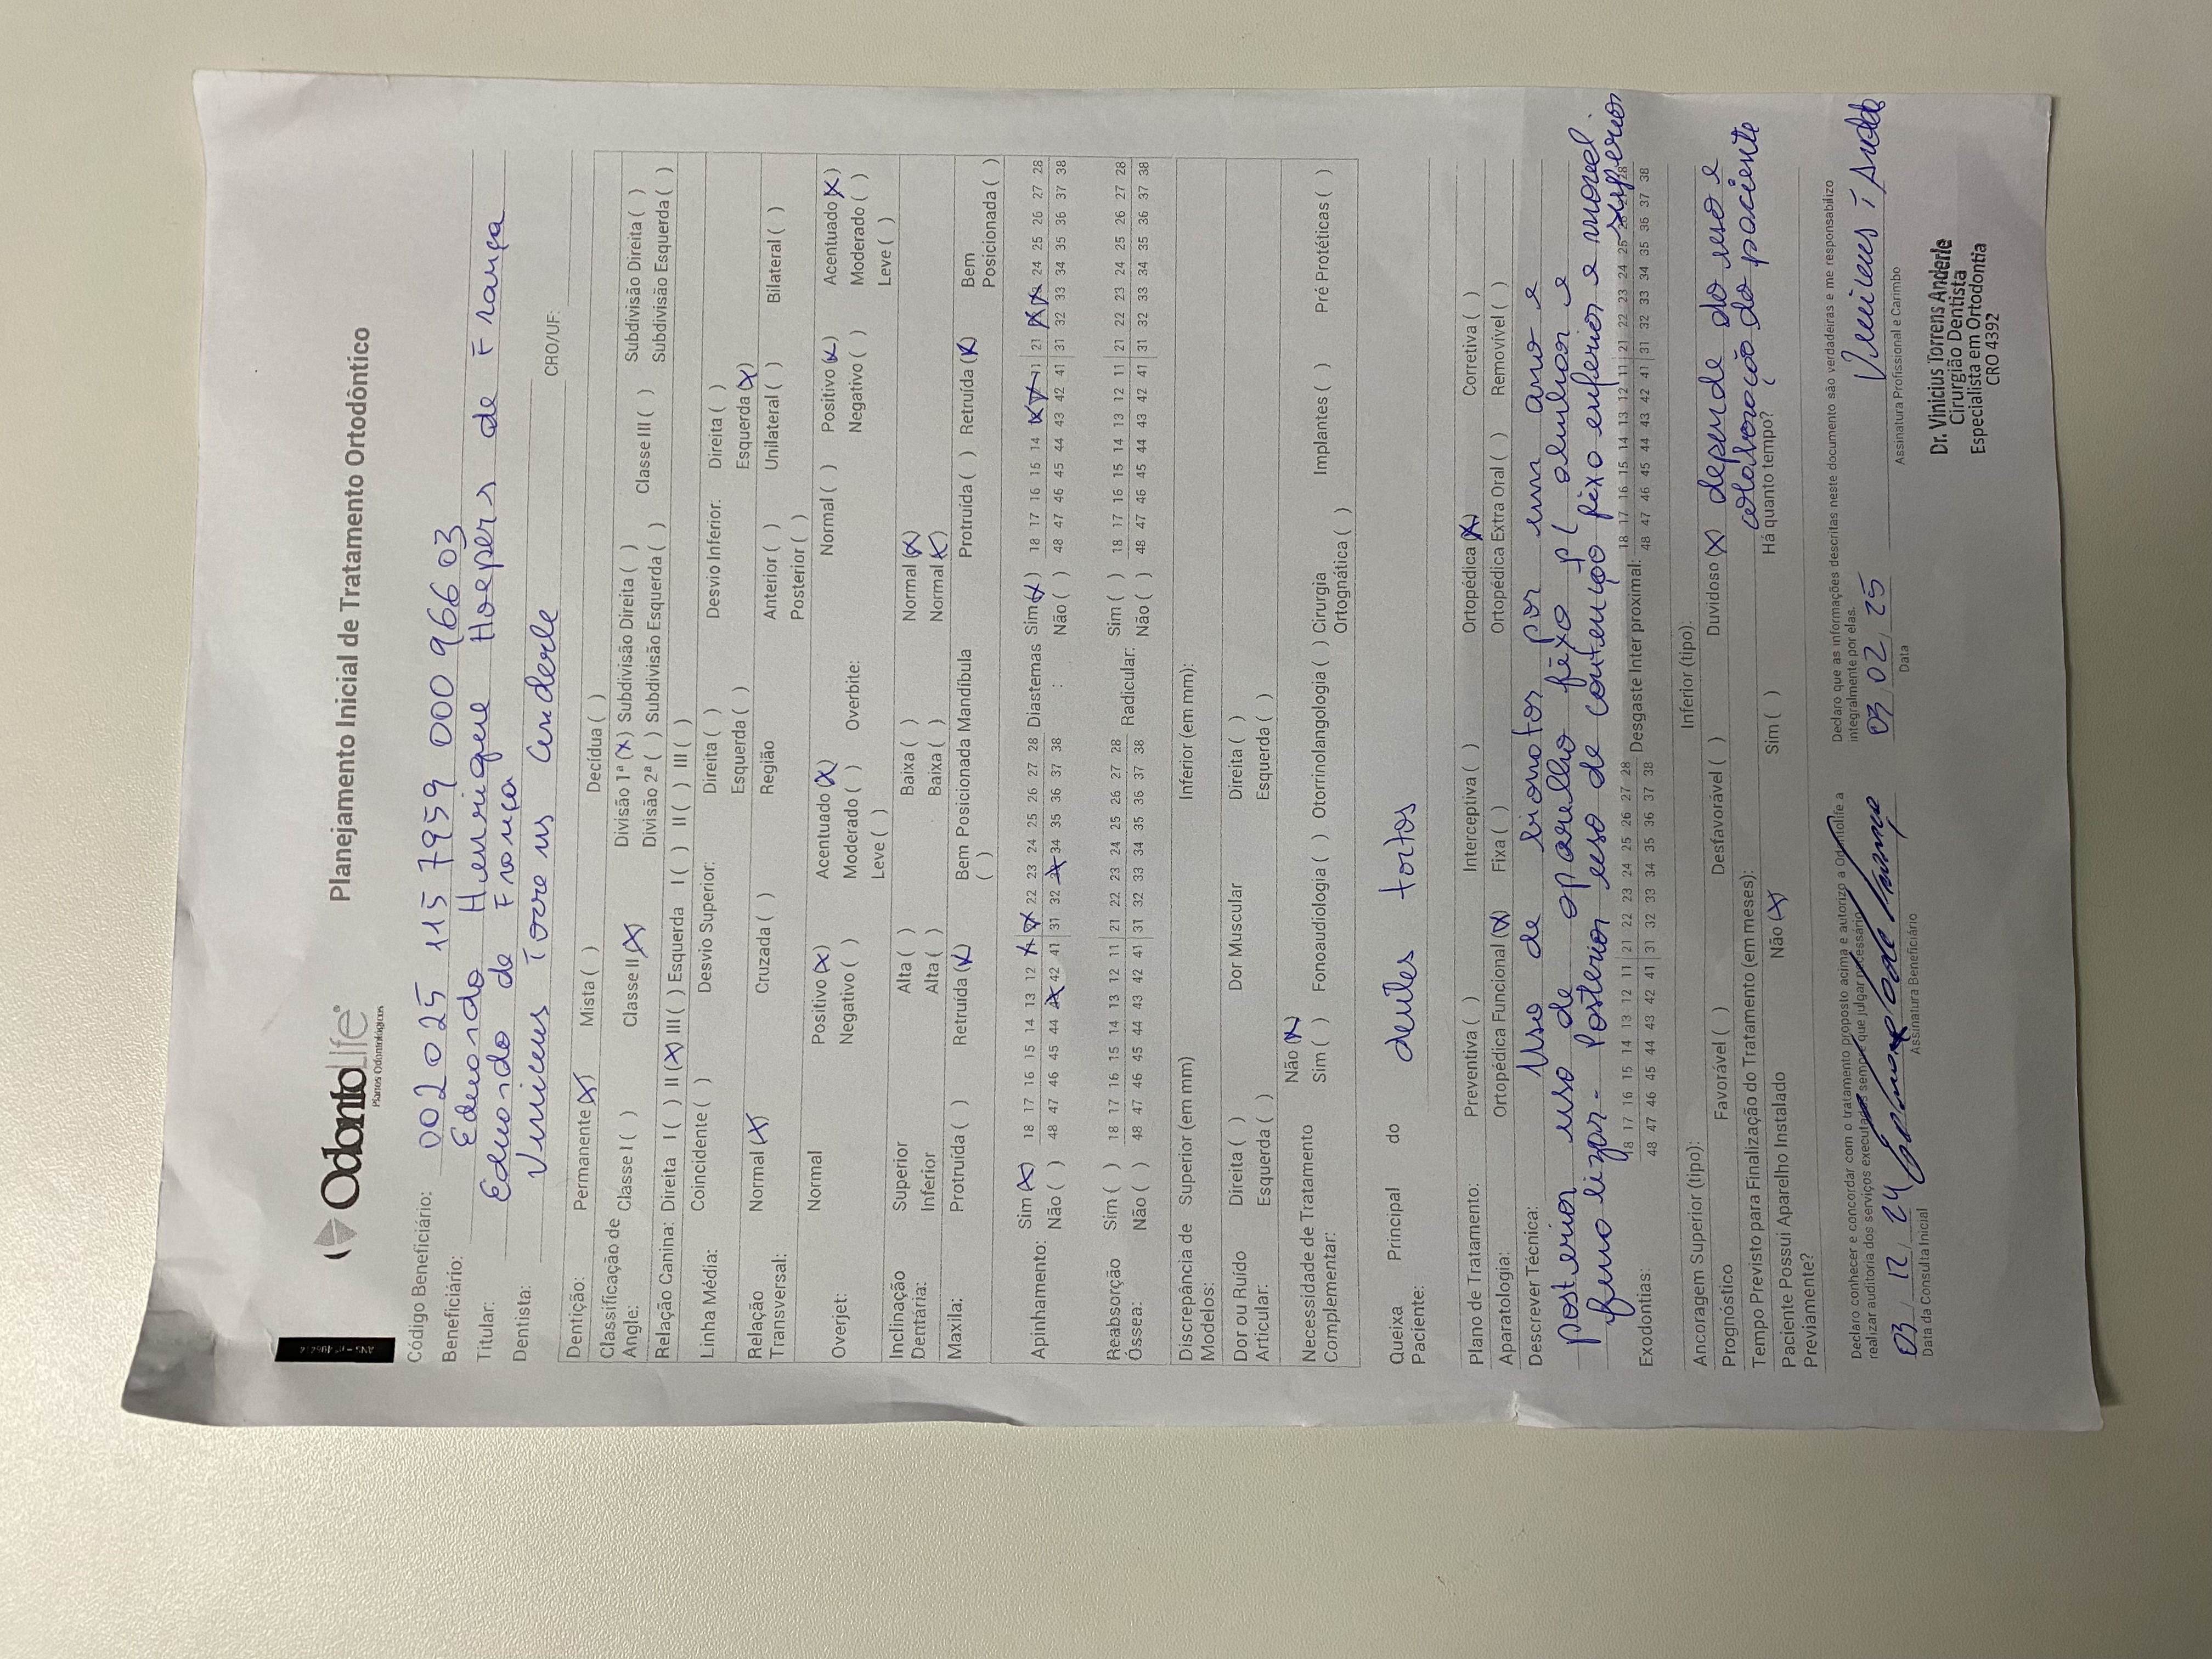 OdontoLife
Planos Odontológicos
Planejamento Inicial de Tratamento Ortodôntico
Código Beneficiário: 002 025 115 7959 000 966 03
Beneficiário: Eduardo Henrique Hoepers de França
Titular: Eduardo de França
Dentista: Vinicius Torrens Anderle CRO/UF:
Dentição: Permanente (X) Mista ( ) Decídua ( )
Classificação de Angle: Classe I ( ) Classe II (X) Divisão 1ª (X) Subdivisão Direita ( ) Classe III ( ) Subdivisão Direita ( )
Divisão 2ª ( ) Subdivisão Esquerda ( ) Subdivisão Esquerda ( )
Relação Canina: Direita I ( ) II (X) III ( ) Esquerda I ( ) II ( ) III ( )
Linha Média: Coincidente ( ) Desvio Superior: Direita ( ) Desvio Inferior: Direita ( )
Esquerda ( ) Esquerda (X)
Relação Transversal: Normal (X) Cruzada ( ) Região Anterior ( ) Unilateral ( ) Bilateral ( )
Posterior ( )
Overjet: Normal Positivo (X) Acentuado (X) Overbite: Normal ( ) Positivo (X) Acentuado (X)
Negativo ( ) Moderado ( ) Negativo ( ) Moderado ( )
Leve ( ) Leve ( )
Inclinação Dentária: Superior Alta ( ) Baixa ( ) Normal (X)
Inferior Alta ( ) Baixa ( ) Normal (X)
Maxila: Protruída ( ) Retruída (X) Bem Posicionada ( ) Mandíbula Protruída ( ) Retruída (X) Bem Posicionada ( )
Apinhamento: Sim (X) 18 17 16 15 14 13 12 X X 22 23 24 25 26 27 28 Diastemas : Sim (X) 18 17 16 15 14 X X 11 21 X X 24 25 26 27 28
Não ( ) 48 47 46 45 44 X 42 41 31 32 X 34 35 36 37 38 Não ( ) 48 47 46 45 44 43 42 41 31 32 33 34 35 36 37 38
Reabsorção Óssea: Sim ( ) 18 17 16 15 14 13 12 11 21 22 23 24 25 26 27 28 Radicular: Sim ( ) 18 17 16 15 14 13 12 11 21 22 23 24 25 26 27 28
Não ( ) 48 47 46 45 44 43 42 41 31 32 33 34 35 36 37 38 Não ( ) 48 47 46 45 44 43 42 41 31 32 33 34 35 36 37 38
Discrepância de Modelos: Superior (em mm) Inferior (em mm):
Dor ou Ruído Articular: Direita ( ) Dor Muscular Direita ( )
Esquerda ( ) Esquerda ( )
Necessidade de Tratamento Complementar: Não (X)
Sim ( ) Fonoaudiologia ( ) Otorrinolangologia ( ) Cirurgia Ortognática ( ) Implantes ( ) Pré Protéticas ( )
Queixa Principal do Paciente: dentes tortos
Plano de Tratamento: Preventiva ( ) Interceptiva ( ) Ortopédica (X) Corretiva ( )
Aparatologia: Ortopédica Funcional (X) Fixa ( ) Ortopédica Extra Oral ( ) Removível ( )
Descrever Técnica: Uso de bionator por um ano e
posterior uso de aparelho fixo p/ alinhar e
finalizar. Posterior uso de contenção fixo inferior e móvel
superior
Exodontias: 18 17 16 15 14 13 12 11 21 22 23 24 25 26 27 28 Desgaste Inter proximal: 18 17 16 15 14 13 12 11 21 22 23 24 25 26 27 28
48 47 46 45 44 43 42 41 31 32 33 34 35 36 37 38 48 47 46 45 44 43 42 41 31 32 33 34 35 36 37 38
Ancoragem Superior (tipo): Inferior (tipo):
Prognóstico Favorável ( ) Desfavorável ( ) Duvidoso (X) depende do uso e
colaboração do paciente
Tempo Previsto para Finalização do Tratamento (em meses):
Paciente Possui Aparelho Instalado Previamente? Não (X) Sim ( ) Há quanto tempo?
Declaro conhecer e concordar com o tratamento proposto acima e autorizo a Odontolife a
realizar auditoria dos serviços executados sempre que julgar necessário.
Declaro que as informações descritas neste documento são verdadeiras e me responsabilizo
integralmente por elas.
03 / 12 / 24
03 / 02 / 25
Data da Consulta Inicial
Assinatura Beneficiário
Data
Assinatura Profissional e Carimbo
Dr. Vinicius Torrens Anderle
Cirurgião Dentista
Especialista em Ortodontia
CRO 4392